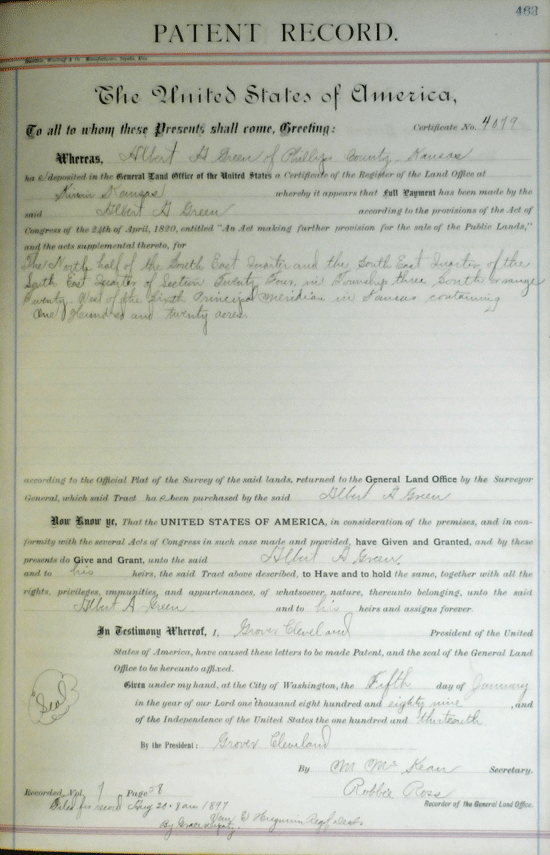 463
PATENT RECORD.
The United States of America,
To all to whom these Presents shall come, Greeting:
Certificate No. 4079
Whereas, Albert A Green of Phillips County Kansas
ha s deposited in the General Land Office of the United States a Certificate of the Register of the Land Office at
Kirwin Kansas whereby it appears that Full Payment has been made by the
said Albert A Green according to the provisions of the Act of
Congress of the 24th of April, 1820, entitled "An Act making further provision for the sale of the Public Lands,"
and the acts supplemental thereto, for
The North half of the South East Quarter and the South East Quarter of the
South East Quarter of Section Twenty Four, in Township three South of range
Twenty, West of the Sixth Principal Meridian in Kansas containing
One Hundred and twenty acres
according to the Official Plat of the Survey of the said lands, returned to the General Land Office by the Surveyor
General, which said Tract ha s been purchased by the said Albert A Green
Now Know ye, That the UNITED STATES OF AMERICA, in consideration of the premises, and in con-
formity with the several Acts of Congress in such case made and provided, have Given and Granted, and by these
presents do Give and Grant, unto the said Albert A Green
and to his heirs, the said Tract above described, to Have and to hold the same, together with all the
rights, privileges, immunities, and appurtenances, of whatsoever nature, thereunto belonging, unto the said
Albert A Green and to his heirs and assigns forever.
In Testimony Whereof, I, Grover Cleveland President of the United
States of America, have caused these letters to be made Patent, and the seal of the General Land
Office to be hereunto affixed.
Given under my hand, at the City of Washington, the Fifth day of January
in the year of our Lord one thousand eight hundred and eighty nine, and
of the Independence of the United States the one hundred and thirteenth
Seal
By the President: Grover Cleveland
By M McKean Secretary.
Robbie Ross
Recorder of the General Land Office.
Recorded, Vol. 7 Page 58
Filed for record Aug 20 8 am 1897
By Grace Deputy